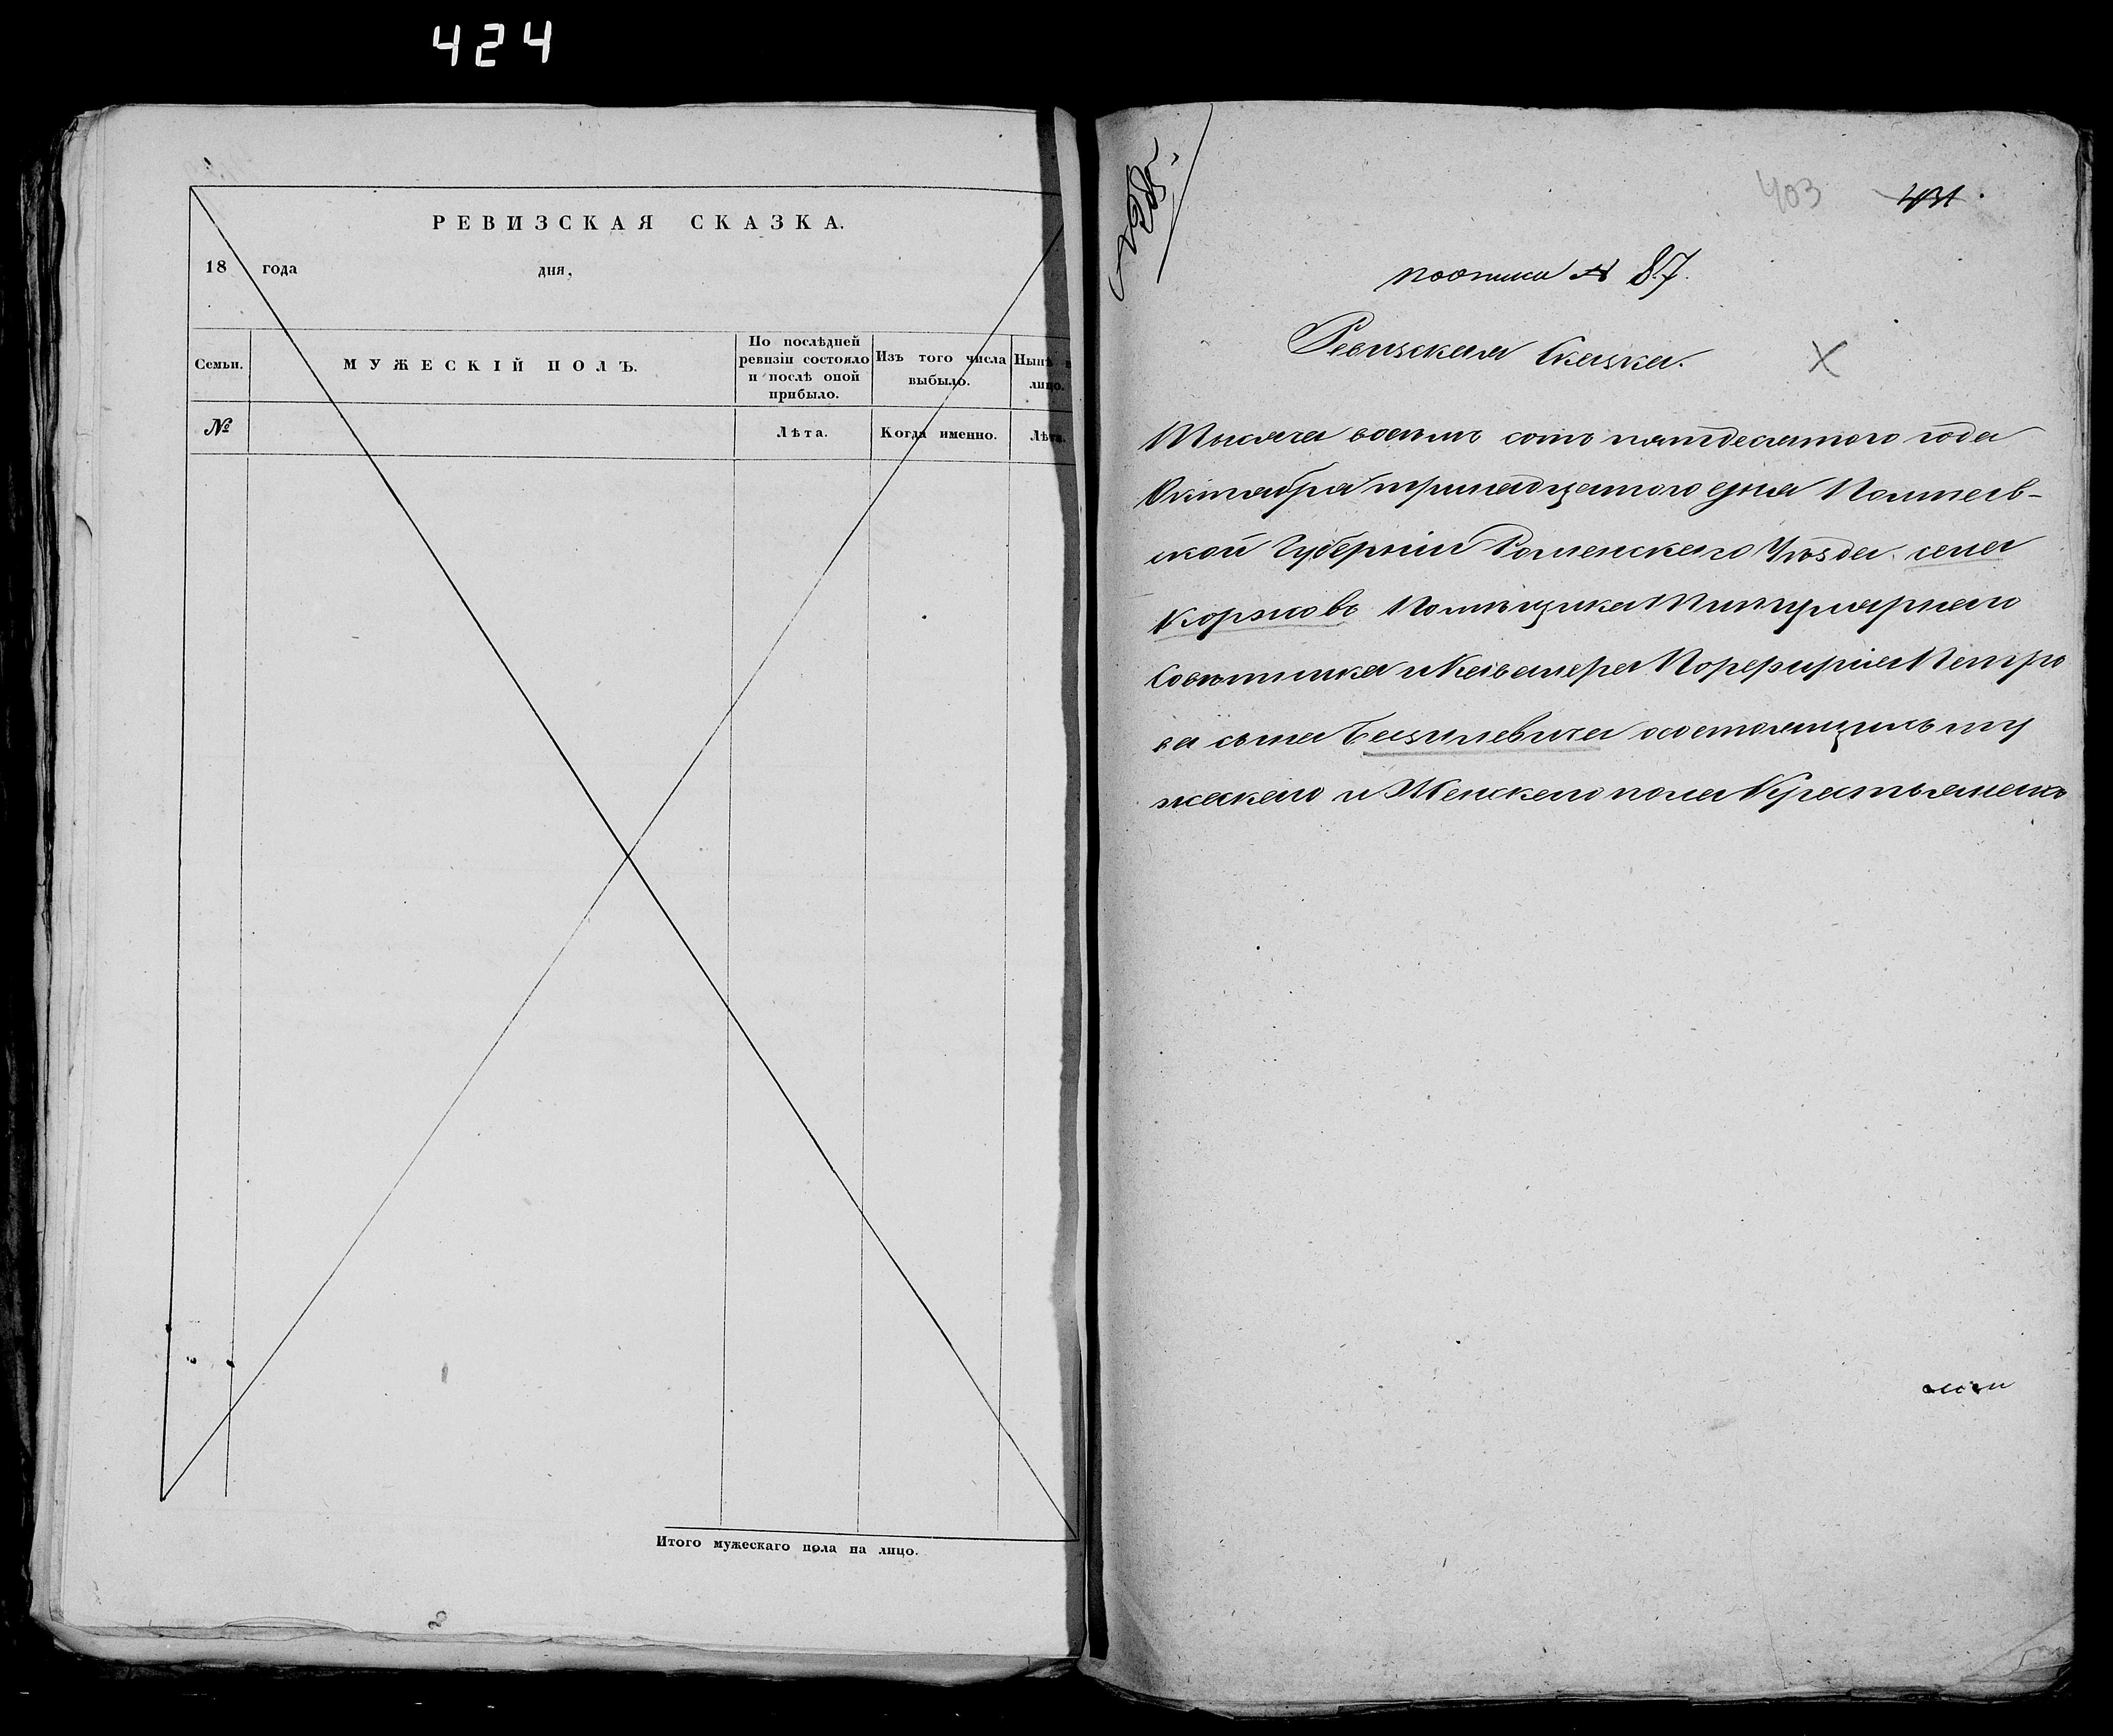 424
РЕВИЗСКАЯ СКАЗКА.
18 года дня,
Семьи.
МУЖЕСКІЙ ПОЛЪ.
По послѣдней ревизіи состояло и послѣ оной прибыло.
Изъ того числа выбыло.
Нынѣ
лицо.
№
Лѣта.
Когда именно.
Лѣта.
Итого мужескаго пола на лицо.
403
поописи № 87.
Ревизская Сказка.
Тысяча восемь сотъ пятдесятого года
Октября тринадцатого дня Полтав-
ской Губерніи Роменскаго Уѣзда села
Коржовъ Помѣщика Титулярнаго
Совѣтника и Кавалера Порфирія Петро
ва сына Базилевича осостоящихъ му
жескаго и Женскаго пола Крестьянахъ